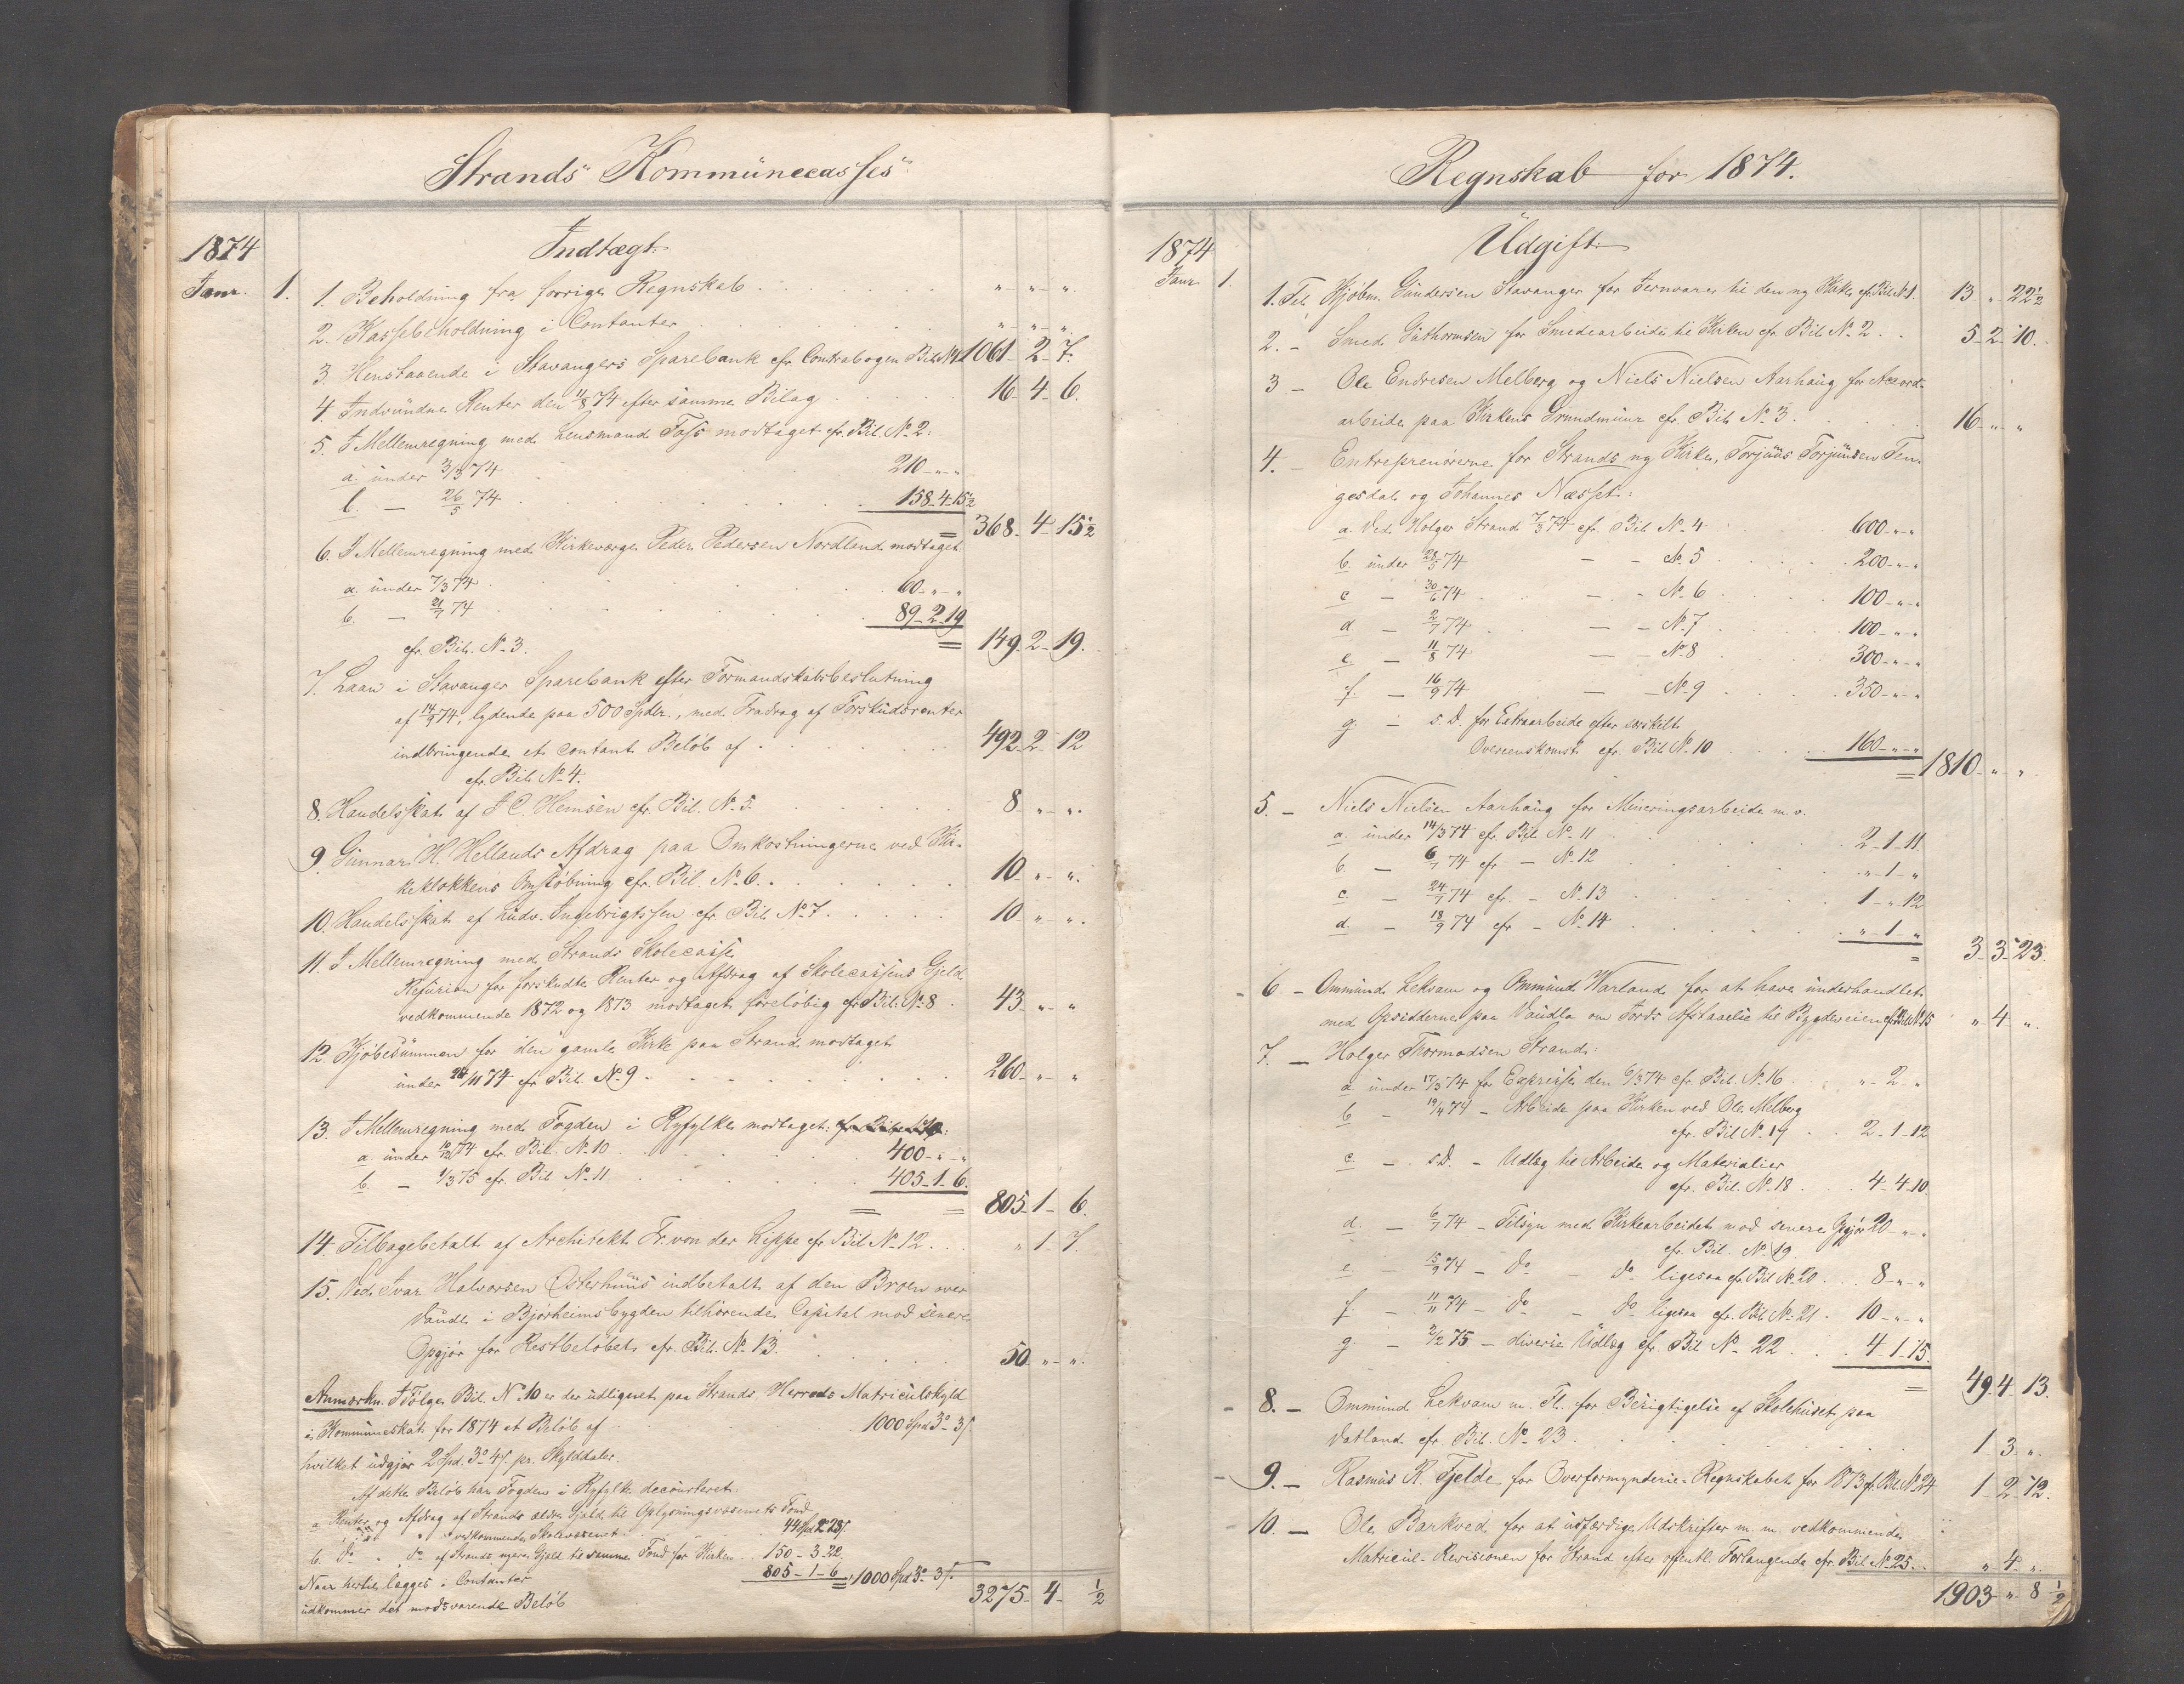 Strands Kommünecasses
1874
Indtægt.
Janr. 1. 1. Beholdning fra forrige Regnskab . " - " - ".
2. Kassebeholdning i Contanter . " - " - ".
3. Henstaaende i Stavangers Sparebank cfr. Contrabogen Bil. No 1 1061 - 2 - 7.
4. Indvundne Renter den 11/8 74 efter samme Bilag 16 - 4 - 6.
5. I Mellemregning med Lensmand Foss modtaget cfr. Bil. No 2:
a. under 3/3 74 210 - " - "
b. — 26/5 74 158 - 4 - 15½
= 368 - 4 - 15½
6. I Mellemregning med Kirkeværge Peder Pedersen Nordland modtaget
a. under 7/3 74 60 - " - "
b. — 21/7 74 89 - 2 - 19
cfr. Bil. No 3. = 149 - 2 - 19.
7. Laan i Stavanger Sparebank efter Formandskabsbeslutning
af 14/9 74, lydende paa 500 Spdlr., med Fradrag af Forskudsrenter
indbringende et contant Beløb af 492 - 2 - 12
cfr. Bil. No 4.
8. Handelsskat af I C. Hemsen cfr. Bil. No 5. 8 " - ".
9. Günnar H. Hellands Afdrag paa Omkostningerne ved Kir-
keklokkens Omstøbning cfr. Bil. No 6. 10 " - ".
10. Handelsskat af Lüdv. Ingebrigtssen cfr. Bil. No 7. 10 " - ".
11. I Mellemregning med Strands Skolecasse
Refüsion for forskudte Renter og Afdrag af Skolecassens Gjeld
vedkommende 1872 og 1873 modtaget foreløbig cfr. Bil. No 8 43 " - "
12. Kjøbesümmen for den gamle Kirke paa Strand modtaget
under 24/11 74 cfr. Bil. No 9 260 - " - "
13. I Mellemregning med Fogden i Ryfylke modtaget:
a. under 10/12 74 cfr. Bil. No 10 400 - " - "
b. — 1/3 75 cfr. Bil. No 11 405 - 1 - 6.
= = 805 - 1 - 6.
14. Tilbagebetalt af Architekt Fr. von der Lippe cfr. Bil. No 12. " 1 - 7.
15. Ved Ivar Halvorsen Østerhuüs indbetalt af den Broen over
Vaudle i Bjørheimsbygden tilhørende Capital mod senere
Opgjør for Restbeløbet cfr. Bil. No 13. 50 " - ".
Anmærkn. Ifølge Bil. No 10 er der üdlignet paa Strands Herreds Matricülskyld
i Kommüneskat for 1874 et Beløb af 1000 Spd 3 - 3 ß
hvilket üdgjør 2 Spd. 3 - 4 ß. pr. Skylddaler.
Af dette Beløb har Fogden i Ryfylke decourteret
a. Renter og Afdrag af Strands ældre Gjeld til Oplysningsvæsenets Fond
vedkommende Skolevæsenet 44 Spd 2 - 23 ß.
b. Do " do af Strands nyere Gjeld til samme Fond for Kirken 150 - 3 - 22
Naar hertil lægges i Contanter 805 - 1 - 6 = 1000 Spd 3 - 3 ß.
üdkommer det modsvarende Beløb
3275 - 4 - ½
Regnskab for 1874.
1874
Üdgift:
Janr 1. 1. Til Kjøbm. Gündersen Stavanger for Jernvarer til den ny Kirke cfr. Bil. No 1. 13 " 22½
2. - Smed Güthormsen for Smedearbeide til Kirken cfr. Bil. No 2. 5 - 2 - 10.
3 — Ole Endresen Melberg og Niels Nielsen Aarhaüg for Accord-
arbeide paa Kirkens Grundmüur cfr. Bil. No 3. 16 - " - "
4. - Entreprenørerne for Strands ny Kirke, Torjüüs Torjüüsen Ten-
gesdal og Johannes Næsset:
a. Ved Holger Strand 7/3 74 cfr. Bil. No 4 600 - " - "
b. under 28/5 74 — - No 5 200 - " - "
c — 30/6 74 — - No 6 100 - " - "
d. — 2/7 74 — - No 7 100 - " - "
e. — 11/8 74 — - No 8 300 - " - "
f. — 16/9 74 — - No 9 350 - " - "
g. — s. D. for Extraarbeide efter særskilt
Overeenskomst cfr. Bil. No 10 160 - " - "
= 1810 - " - "
5. — Niels Nielsen Aarhaüg for Mineringsarbeide m. v.
a. under 14/3 74 cfr. Bil. No 11 2 - 1 - 11
b. — 6/7 74 cfr. — No 12 " - 1 - "
c. — 24/7 74 cfr. — No 13 1 - " - 12
d. — 18/9 74 cfr — No 14 " - 1 - "
= 3 - 3 - 23.
6 - Ommünd Lekvam og Ommünd Warland for at have ünderhandlet
med Opsidderne paa Vaüdla om Jords Afstaaelse til Bygdeveien cfr. Bil. No 15 " 4 ".
7. — Holger Thormodsen Strand:
a. under 17/3 74 for Expresse den 6/3 74 cfr. Bil. No 16 " - 2 - "
b — 19/4 74 — Arbeide paa Kirken ved Ole Melberg
cfr. Bil. No 17 2 - 1 - 12
c. — s.D. — Udlæg til Arbeide og Materialier
cfr. Bil. No 18 4 - 4 - 10.
d. — 6/7 74 — Tilsyn med Kirkearbeidet mod senere Opgjør 20 - " - "
cfr. Bil. No 19
e — 15/9 74 — do - do ligesaa cfr. Bil. No 20 8 - " - "
f. — 11/11 74 — do - do ligesaa cfr. Bil. No 21 10 - " - "
g — 2/2 75 — diverse Udlæg cfr. Bil. No 22 4 - 1 - 15.
= 49 - 4 - 13.
8. — Ommünd Lekvam m. Fl. for Besigtigelse af Skolehüset paa
Vatland cfr. Bil. No 23 1 - 3 ".
9. — Rasmüs R. Fjelde for Overformynderie-Regnskabet for 1873 cfr. Bil. No 24 1 - 2 - 12.
10. — Ole Barkved for at üdfærdige Udskrifter m. m. vedkommende
Matricul-Revisionen for Strand efter offentl. Forlangende cfr. Bil. No 25. " 4 ".
1903 - " - 8 ½